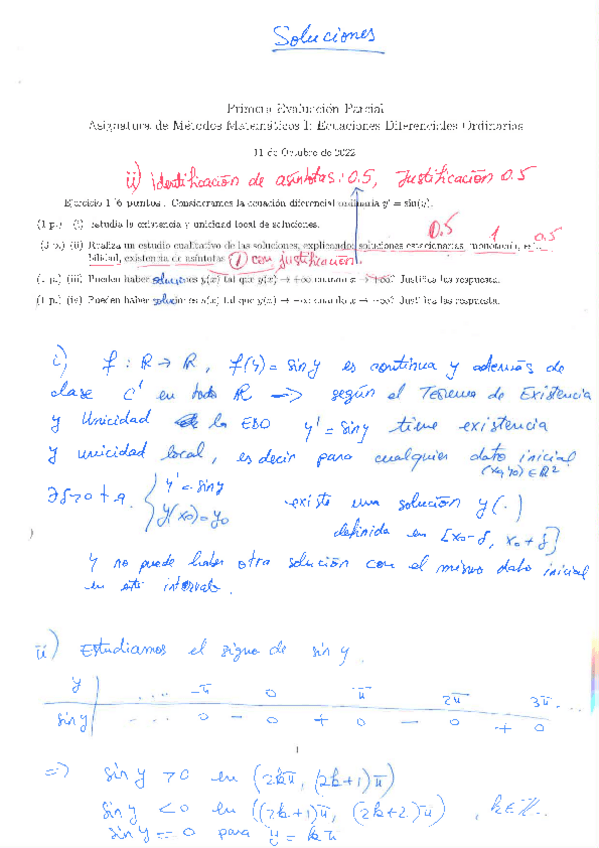 Soluciones
Primera Evaluación Parcial
Asignatura de Métodos Matemáticos I: Ecuaciones Diferenciales Ordinarias
11 de Octubre de 2022
ii) identificación de asíntotas: 0.5, Justificación 0.5
Ejercicio 1 (6 puntos). Consideramos la ecuación diferencial ordinaria y' = sin(y).
0.5 1 0.5
(1 p.) (i) Estudia la existencia y unicidad local de soluciones.
(3 p.) (ii) Realiza un estudio cualitativo de las soluciones, explicando: soluciones estacionarias, monotonía,
bilidad, existencia de asíntotas. ① con justificación.
(1 p.) (iii) Pueden haber soluciones y(x) tal que y(x) → +∞ cuando x → +∞? Justifica las respuesta.
(1 p.) (iv) Pueden haber soluciones y(x) tal que y(x) → −∞ cuando x → −∞? Justifica las respuesta.
i) f: R → R, f(y) = sin y es continua y además de
clase C¹ en todo R → según el Teorema de Existencia
y Unicidad la EDO y' = sin y tiene existencia
y unicidad local, es decir para cualquier dato inicial
(x₀, y₀) ∈ R²
∃ δ>0 t.q. { y' = sin y existe una solución y(·)
y(x₀) = y₀ definida en [x₀-δ, x₀+δ]
y no puede haber otra solución con el mismo dato inicial
en este intervalo.
ii) Estudiamos el signo de sin y.
y | .... -π 0 π 2π 3π ...
sin y | ... 0 - 0 + 0 - 0 + 0
1
⇒) sin y > 0 en (2kπ, (2k+1)π)
sin y < 0 en ((2k+1)π, (2k+2)π), k∈Z.
sin y = 0 para y = kπ